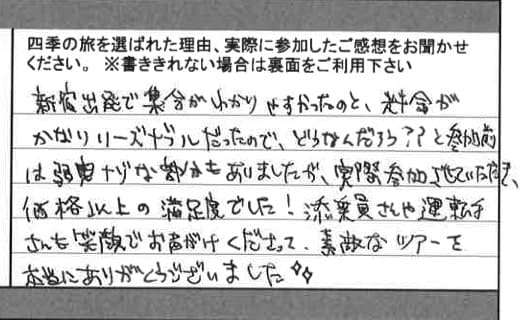 四季の旅を選ばれた理由、実際に参加したご感想をお聞かせ
ください。 ※書ききれない場合は裏面をご利用下さい
新宿出発で集合がわかりやすかったのと、料金が
かなりリーズナブルだったので、どうなんだろう??と参加前
は弱冠ナゾな部分もありましたが、実際参加させていただき、
価格以上の満足度でした!添乗員さんや運転手
さんも笑顔でお声がけくださって、素敵なツアーを
本当にありがとうございました